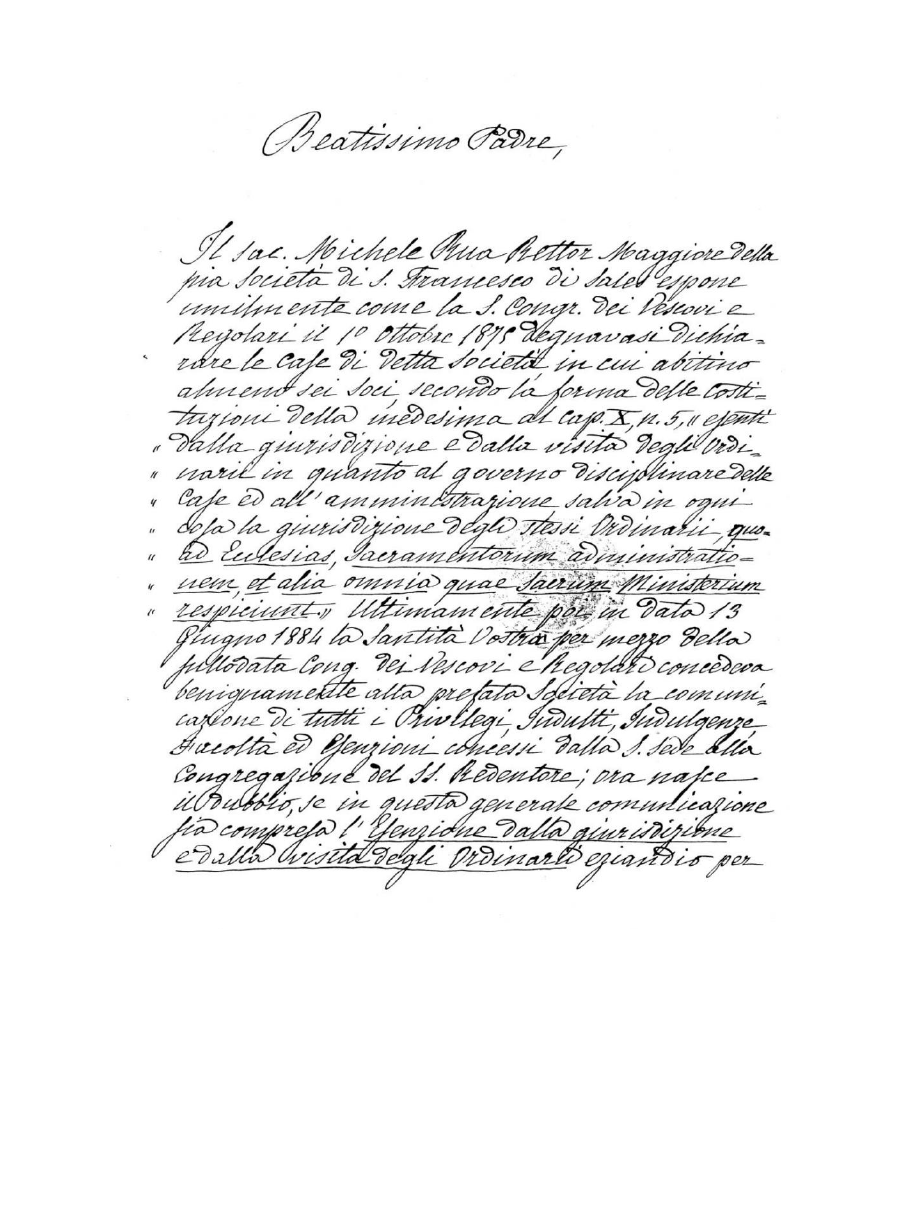 Beatissimo Padre,
Il sac. Michele Rua Rettor Maggiore della
pia Società di S. Francesco di Sales espone
umilmente come la S. Congr. dei Vescovi e
Regolari il 1º Ottobre 1875 degnavasi dichia=
rare le Case di detta Società in cui abitino
almeno sei soci, secondo la forma delle Costi=
tuzioni della medesima al Cap. X, n. 5, „ esenti
„ dalla giurisdizione e dalla visita degli Ordi=
„ narii in quanto al governo disciplinare delle
„ Case ed all'amministrazione salva in ogni
„ cosa la giurisdizione degli stessi Ordinarii, quo=
„ ad Ecclesias, Sacramentorum administratio=
„ nem, et alia omnia quae Sacrum Ministerium
„ respiciunt. „ Ultimamente poi in data 13
Giugno 1884 la Santità Vostra per mezzo della
sullodata Cong. dei Vescovi e Regolari concedeva
benignamente alla prefata Società la comuni=
cazione di tutti i Privilegi, Indulti, Indulgenze,
Facoltà ed Esenzioni concessi dalla S. Sede alla
Congregazione del SS. Redentore; ora nasce
il dubbio, se in questa generale comunicazione
sia compresa l'Esenzione dalla giurisdizione
e dalla visita degli Ordinarii eziandio per